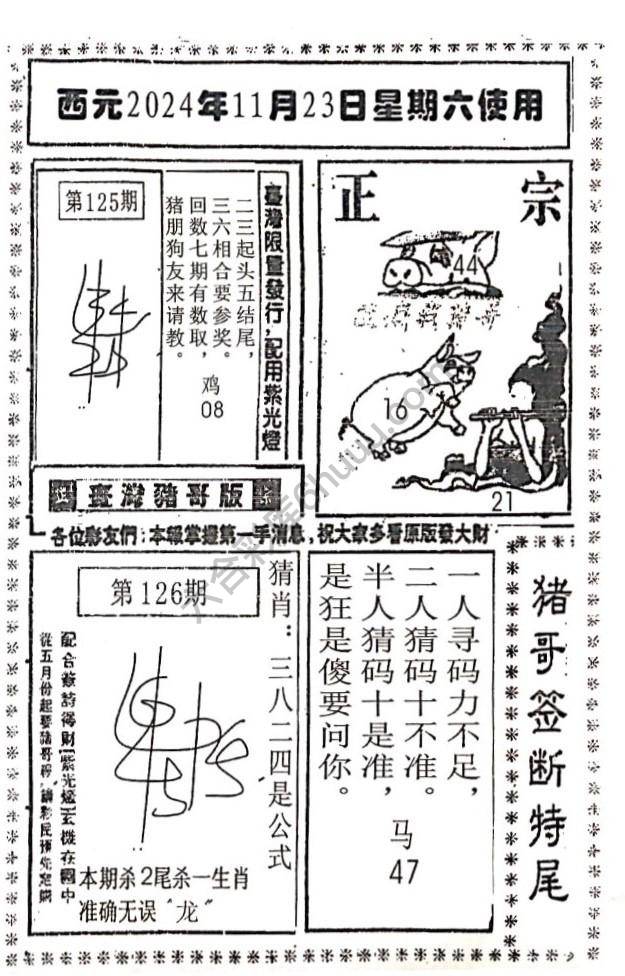 西元2024年11月23日星期六使用
正宗
44
16
21
臺灣限量發行,配用紫光燈
二三起头五结尾,
三六相合要参奖。
回数七期有数取,
猪朋狗友来请教。
鸡
08
第125期
臺灣豬哥版
各位彩友們:本報掌握第一手消息,祝大家多看原版發大財
猪哥签断特尾
一人寻码力不足,
二人猜码十不准。
半人猜码十是准,
是狂是傻要问你。
马
47
猜肖:三八二四是公式
第126期
配合簽詩得財紫光燈玄機在圖中
本期杀2尾杀一生肖
准确无误“龙”